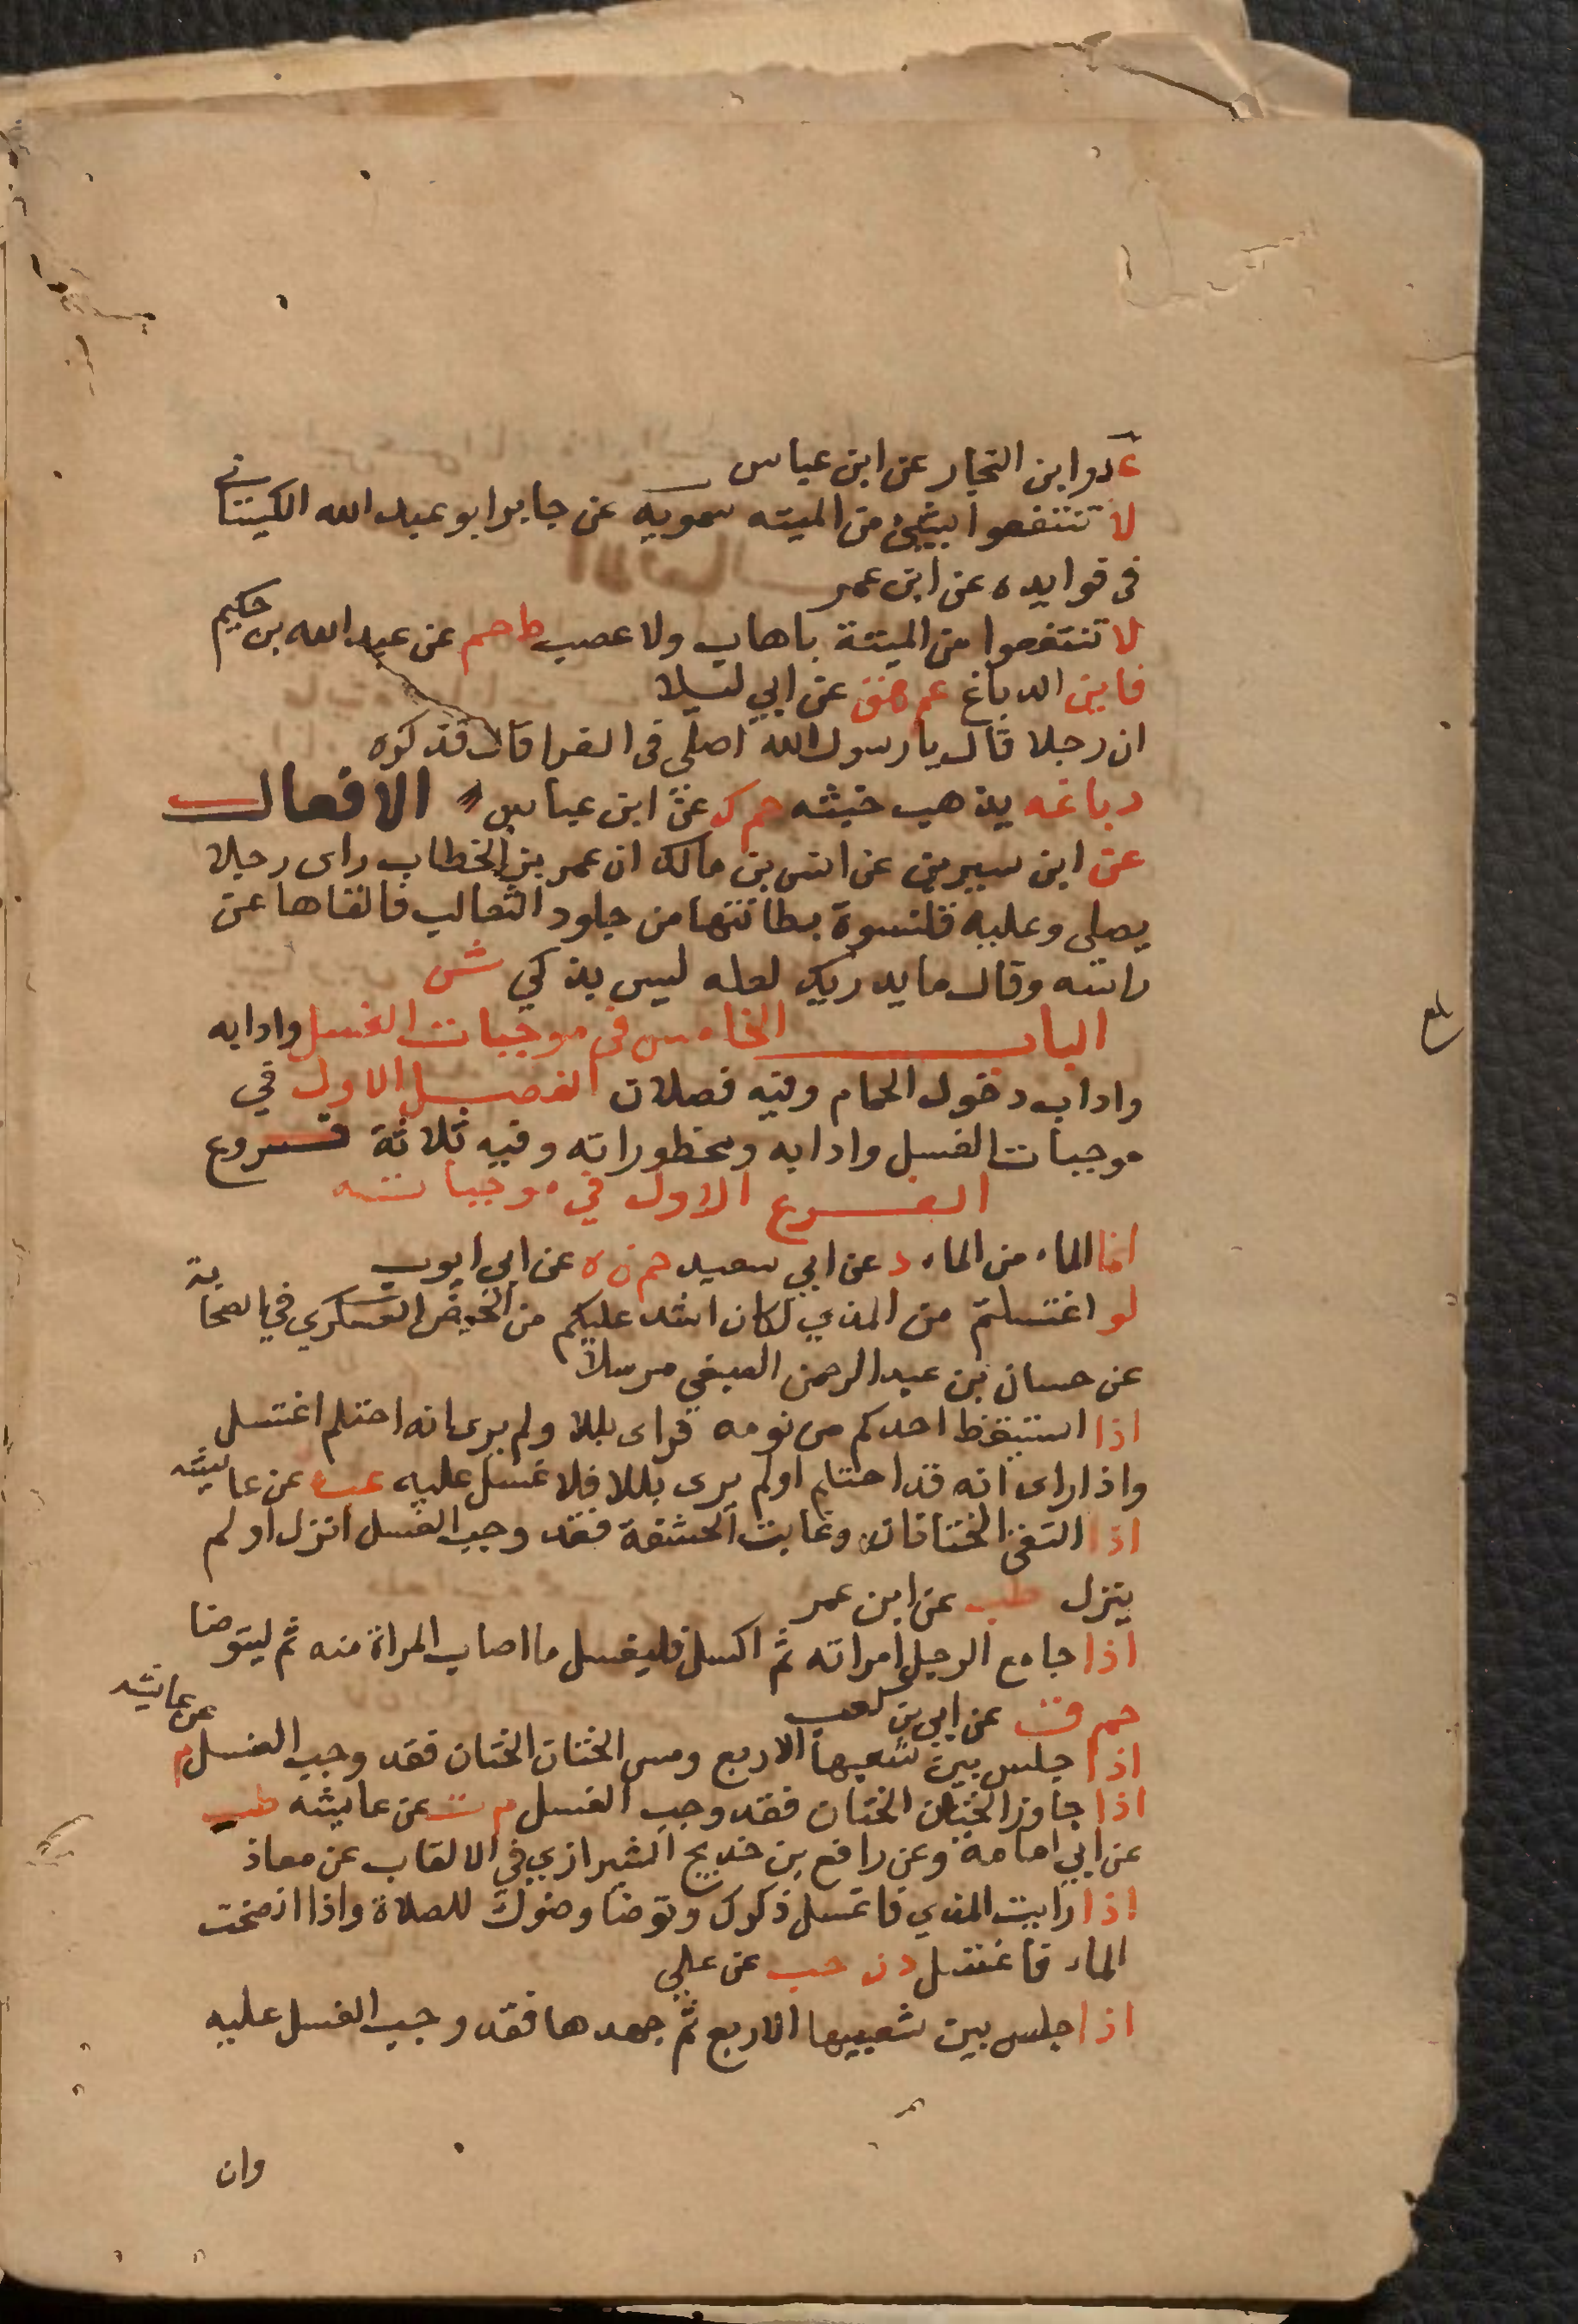 عد وابن النجار عن ابن عباس
لا تنتفعوا بشيئ من الميته سمويه عن جابر ابو عبد الله الكيساني
في فوايده عن ابن عمر
لا تنتفعوا من الميتة باهاب ولا عصب ط حم عن عبد الله بن حكيم
فاين الدباغ عم هق عن ابي ليلا
ان رجلا قال يا رسول الله اصلي في الفرا قال فذكره
دباغه يذهب خبثه حم ك عن ابن عباس الافعال
عن ابن سيرين عن انس بن مالك ان عمر بن الخطاب راى رجلا
يصلي وعليه قلنسوة بطانتها من جلود الثعالب فالقاها عن
راسه وقال ما يدريك لعله ليس بذكي ش
الباب الخامس في موجبات الغسل وادابه
واداب دخول الحمام وفيه فصلان الفصل الاول في
موجبات الغسل وادابه ومحظوراته وفيه ثلاثة فروع
الفرع الاول في موجباته
انما الماء من الماء د عن ابي سعيد حم ن ه عن ابي ايوب
لو اغتسلتم من المذي لكان اشد عليكم من الحيض العسكري في الصحابة
عن حسان بن عبد الرحمن الضبعي مرسلا
اذا استيقظ احدكم من نومه فراى بللا ولم يرى انه احتلم اغتسل
واذا راى انه قد احتلم ولم يرى بللا فلا غسل عليه عن عائيشه
اذا التقى الختانان وغابت الحشفة فقد وجب الغسل انزل او لم
ينزل طب عن ابن عمر
اذا جامع الرجل امراته ثم اكسل فليغسل ما اصاب المراة منه ثم ليتوضا
حم ق عن ابي بن كعب
اذا جلس بين شعبها الاربع ومس الختان الختان فقد وجب الغسل م عن عايشه
اذا جاوز الختان الختان فقد وجب الغسل م ت عن عايشه طب
عن ابي امامة وعن رافع بن خديج الشيرازي في الالقاب عن معاذ
اذا رايت المذي فاغسل ذكرك وتوضا وضوك للصلاة واذا انضخت
الماء فاغتسل د ن حب عن علي
اذا جلس بين شعبيها الاربع ثم جهدها فقد وجب الغسل عليه
وان